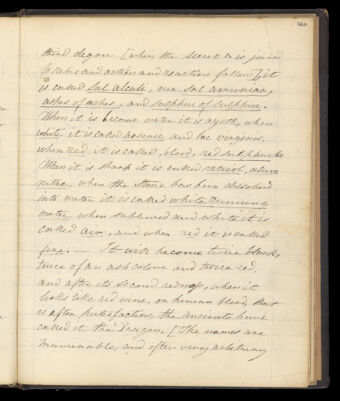 third degree. [when the secret △ is joined
to and action and reaction follow] it
is called sal alcali, our sal armoniac,
ashes of ashes, and sulphur of sulphur.
When it is become water it is azoth, when
white it is called arsenic and lac virginis,
when red it is called, blood, red sulphur &c
When it is sharp it is called vitriol, alum
nitre, when the Stone has been dissolved
into water it is called white running
water, when sublimed and white it is
called air, and when red it is called
fire. — It will become twice black,
twice of an ash colour and twice red,
and after its second redness, when it
looks like red wine, or human blood but
is after putrefaction the ancients have
called it the Dragon. [The names are
innumerable, and often very arbitrary